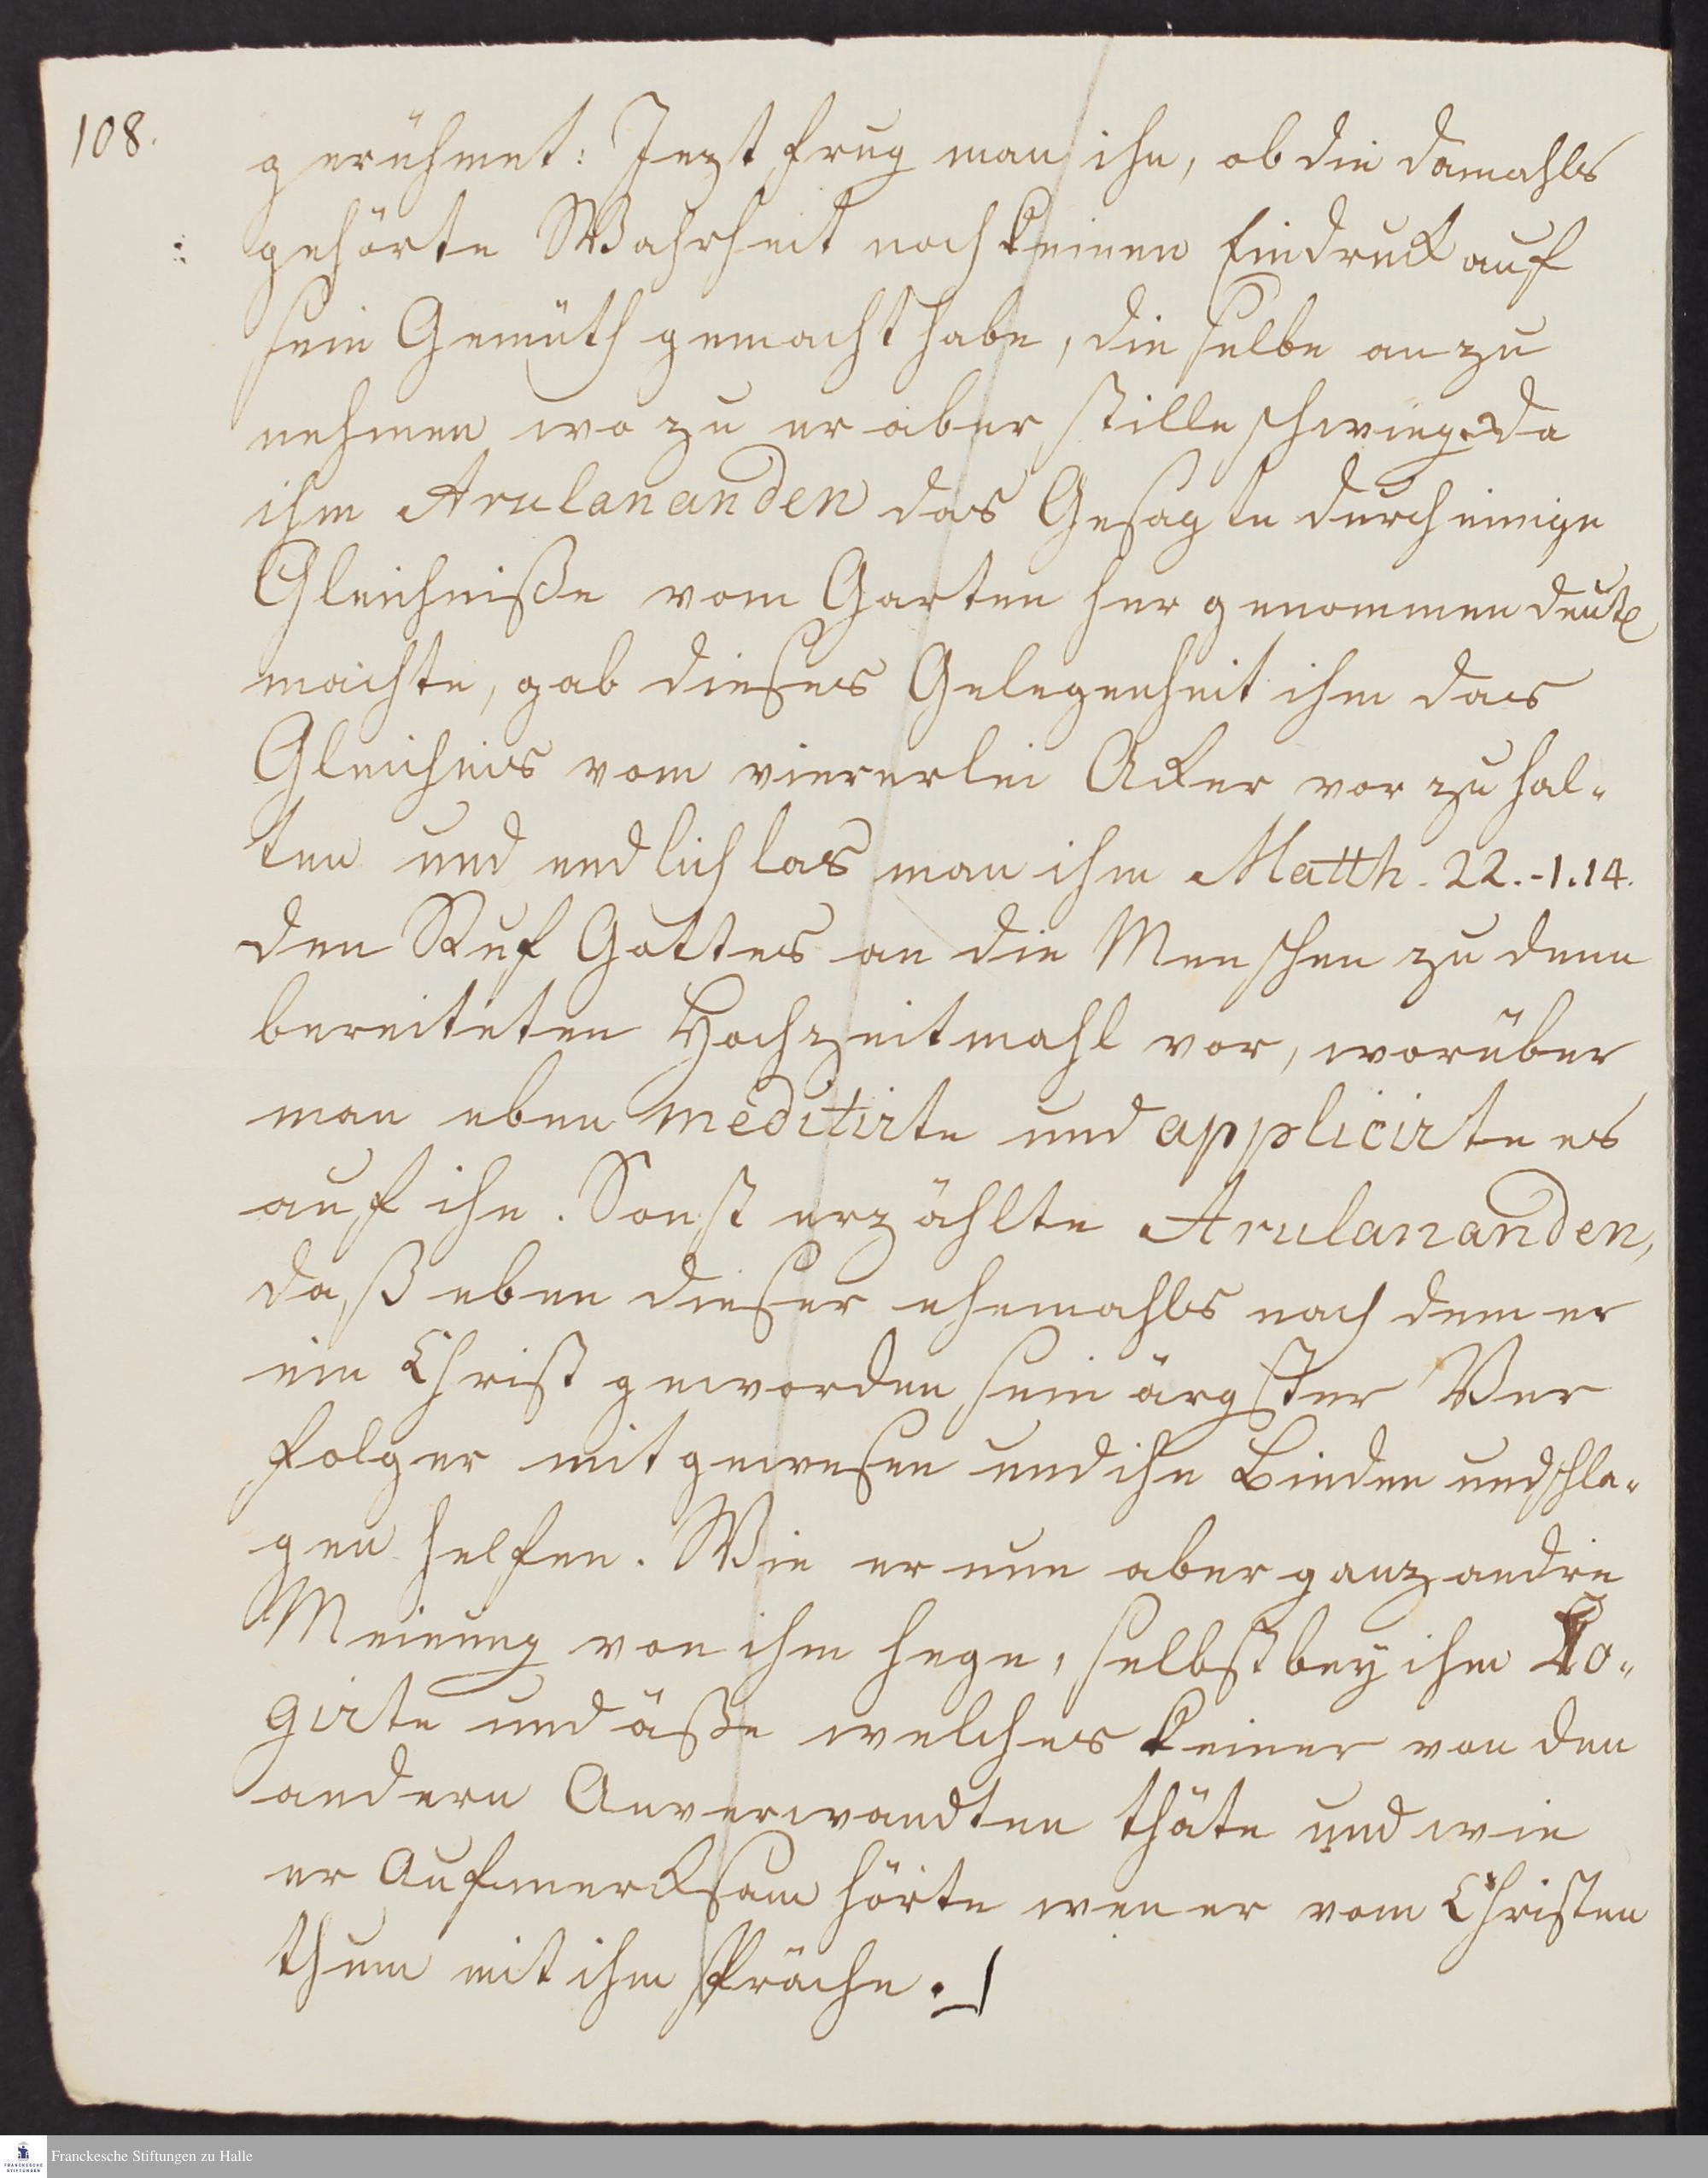 108.
gerühmet: Jezt frug man ihn, ob die damahls
gehörte Wahrheit noch keinen Eindruck auf
sein Gemüth gemacht habe, die selbe an zu
nehmen wo zu er aber stille schwieg. Da
ihm Arulananden das Gesagte durch einige
Gleichniße vom Garten her genommen deutl
machte, gab dieses Gelegenheit ihm das
Gleichnis vom viererlei Acker vor zu hal-
ten und endlich las man ihm Matth. 22.-1.14.
den Ruf Gottes an die Menschen zu dem
bereiteten Hochzeitmahl vor, worüber
man eben meditirte und applicirte es
auf ihn. Sonst erzählte Arulananden,
daß eben dieser ehemahls nach dem er
ein Christ geworden sein ärgster Ver
folger mit gewesen und ihn Binden und schla-
gen helfen. Wie er nun aber ganz andre
Meinung von ihm hege, selbst bey ihm Lo-
girte und äße welches keiner von den
andern Anverwandten thäte und wie
er Aufmercksam hörte wen er vom Christen
thum mit ihm spräche.
Franckesche Stiftungen zu Halle
FRANCKESCHE
STIFTUNGEN